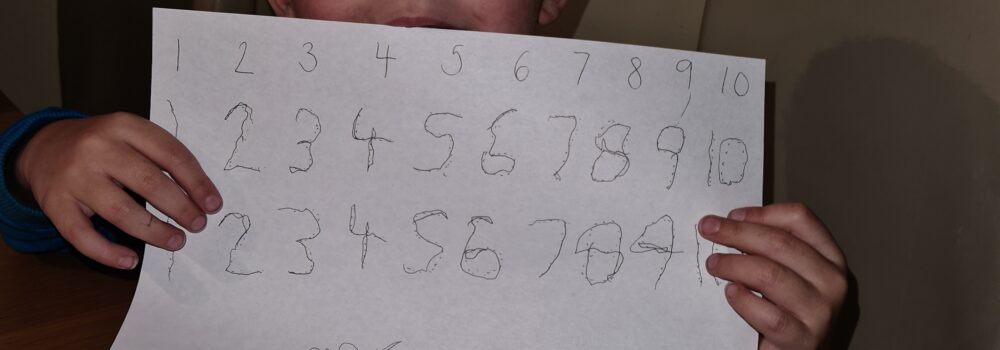 1 2 3 4 5 6 7 8 9 10
1 2 3 4 5 6 7 8 9 10
1 2 3 4 5 6 7 8 9